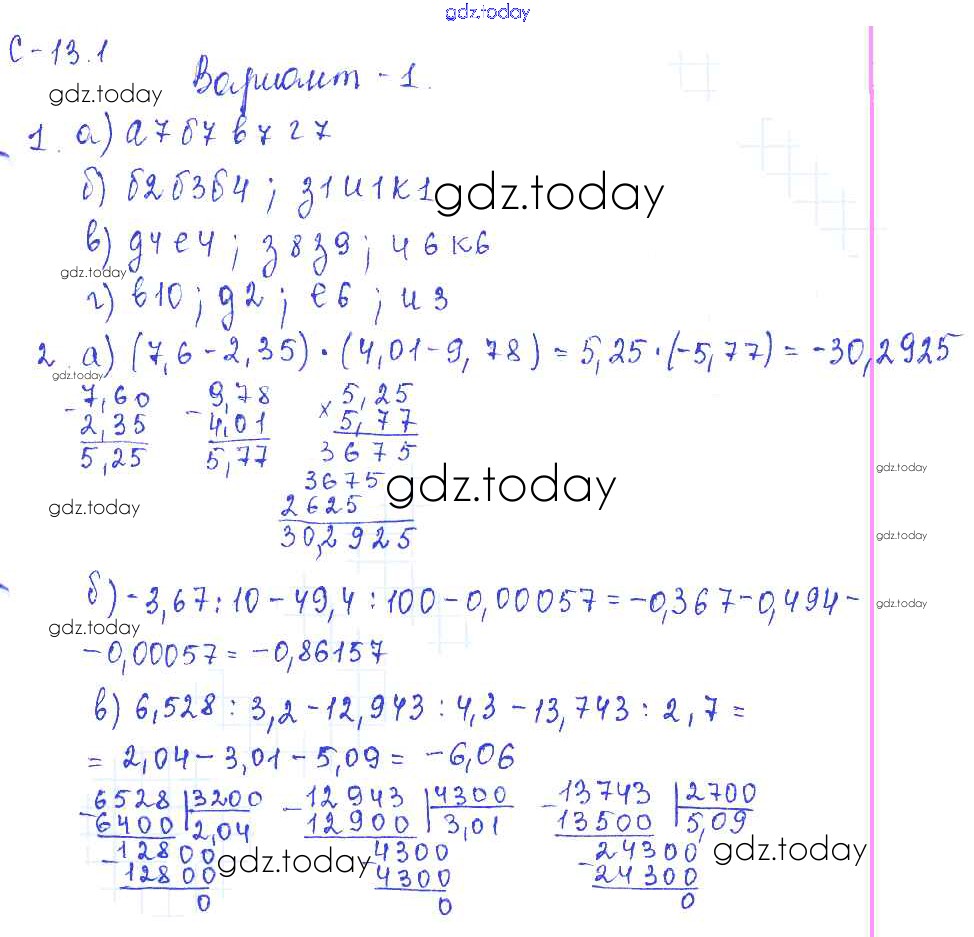 gdz.today
С-13.1
gdz.today
Вариант - 1.
1. а) а7 б7 в7 г7
б) б2 б3 б4 ; з1 и1 к1
gdz.today
в) д4 е4 ; з8 з9 ; и6 к6
gdz.today
г) в10 ; д2 ; е6 ; и3
2. а) (7,6 - 2,35) · (4,01 - 9,78) = 5,25 · (-5,77) = -30,2925
gdz.today
- 7,60 - 9,78 × 5,25
2,35 4,01 5,77
5,25 5,77 3675
gdz.today
3675
gdz.today
2625
gdz.today
30,2925
gdz.today
б) -3,67 : 10 - 49,4 : 100 - 0,00057 = -0,367 - 0,494 -
gdz.today
gdz.today
-0,00057 = -0,86157
в) 6,528 : 3,2 - 12,943 : 4,3 - 13,743 : 2,7 =
= 2,04 - 3,01 - 5,09 = -6,06
- 6528 | 3200 - 12943 | 4300 - 13743 | 2700
6400 | 2,04 12900 | 3,01 13500 | 5,09
- 12800 - 4300 - 24300
gdz.today gdz.today
12800 4300 24300
0 0 0